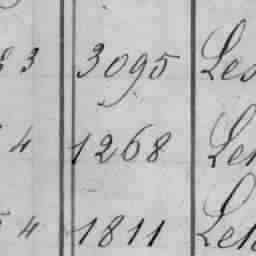 3 3095 Leo
4 1268 Len
4 1811 Len